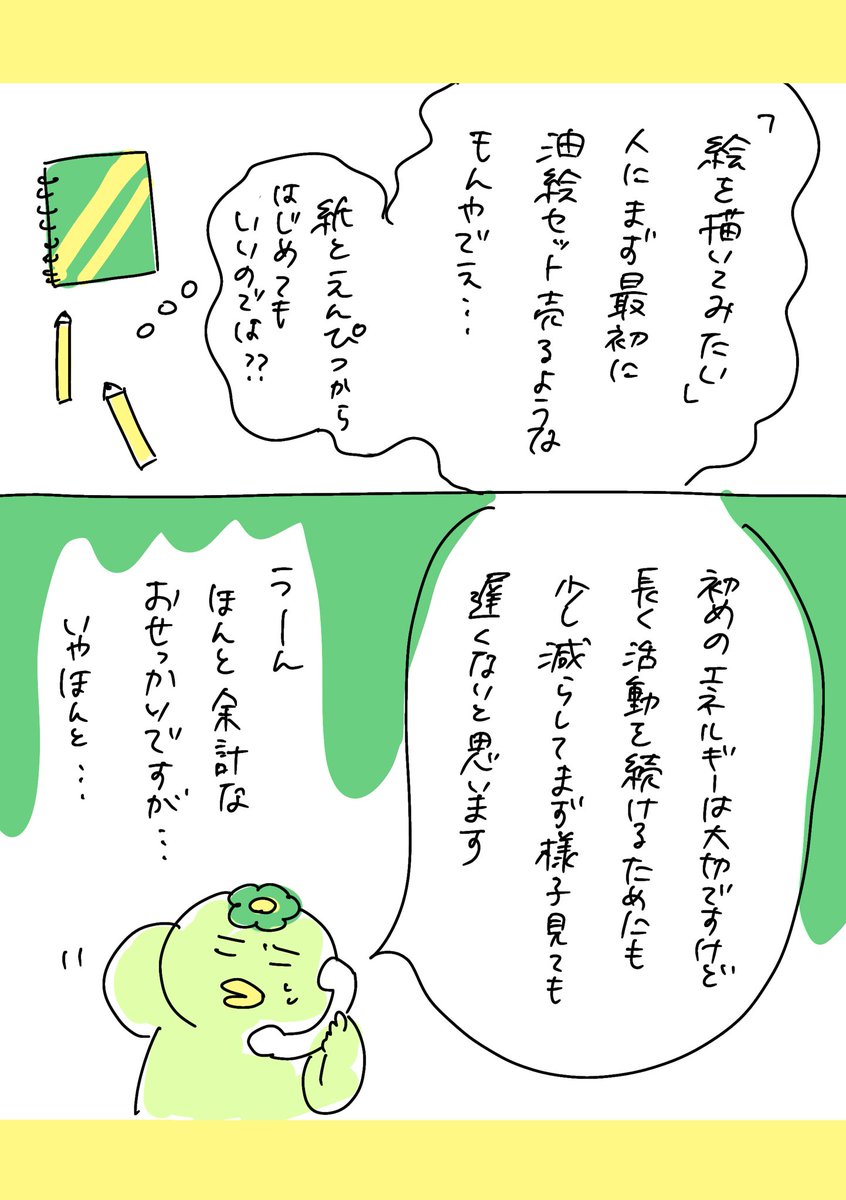 「絵を描いてみたい」
人にまず最初に
油絵セット売るような
もんやでェ…
紙とえんぴつから
はじめても
いいのでは??
初めのエネルギーは大切ですけど
長く活動を続けるためにも
少し減らしてまず様子見ても
遅くないと思います
うーん
ほんと余計な
おせっかいですが…
いやほんと…